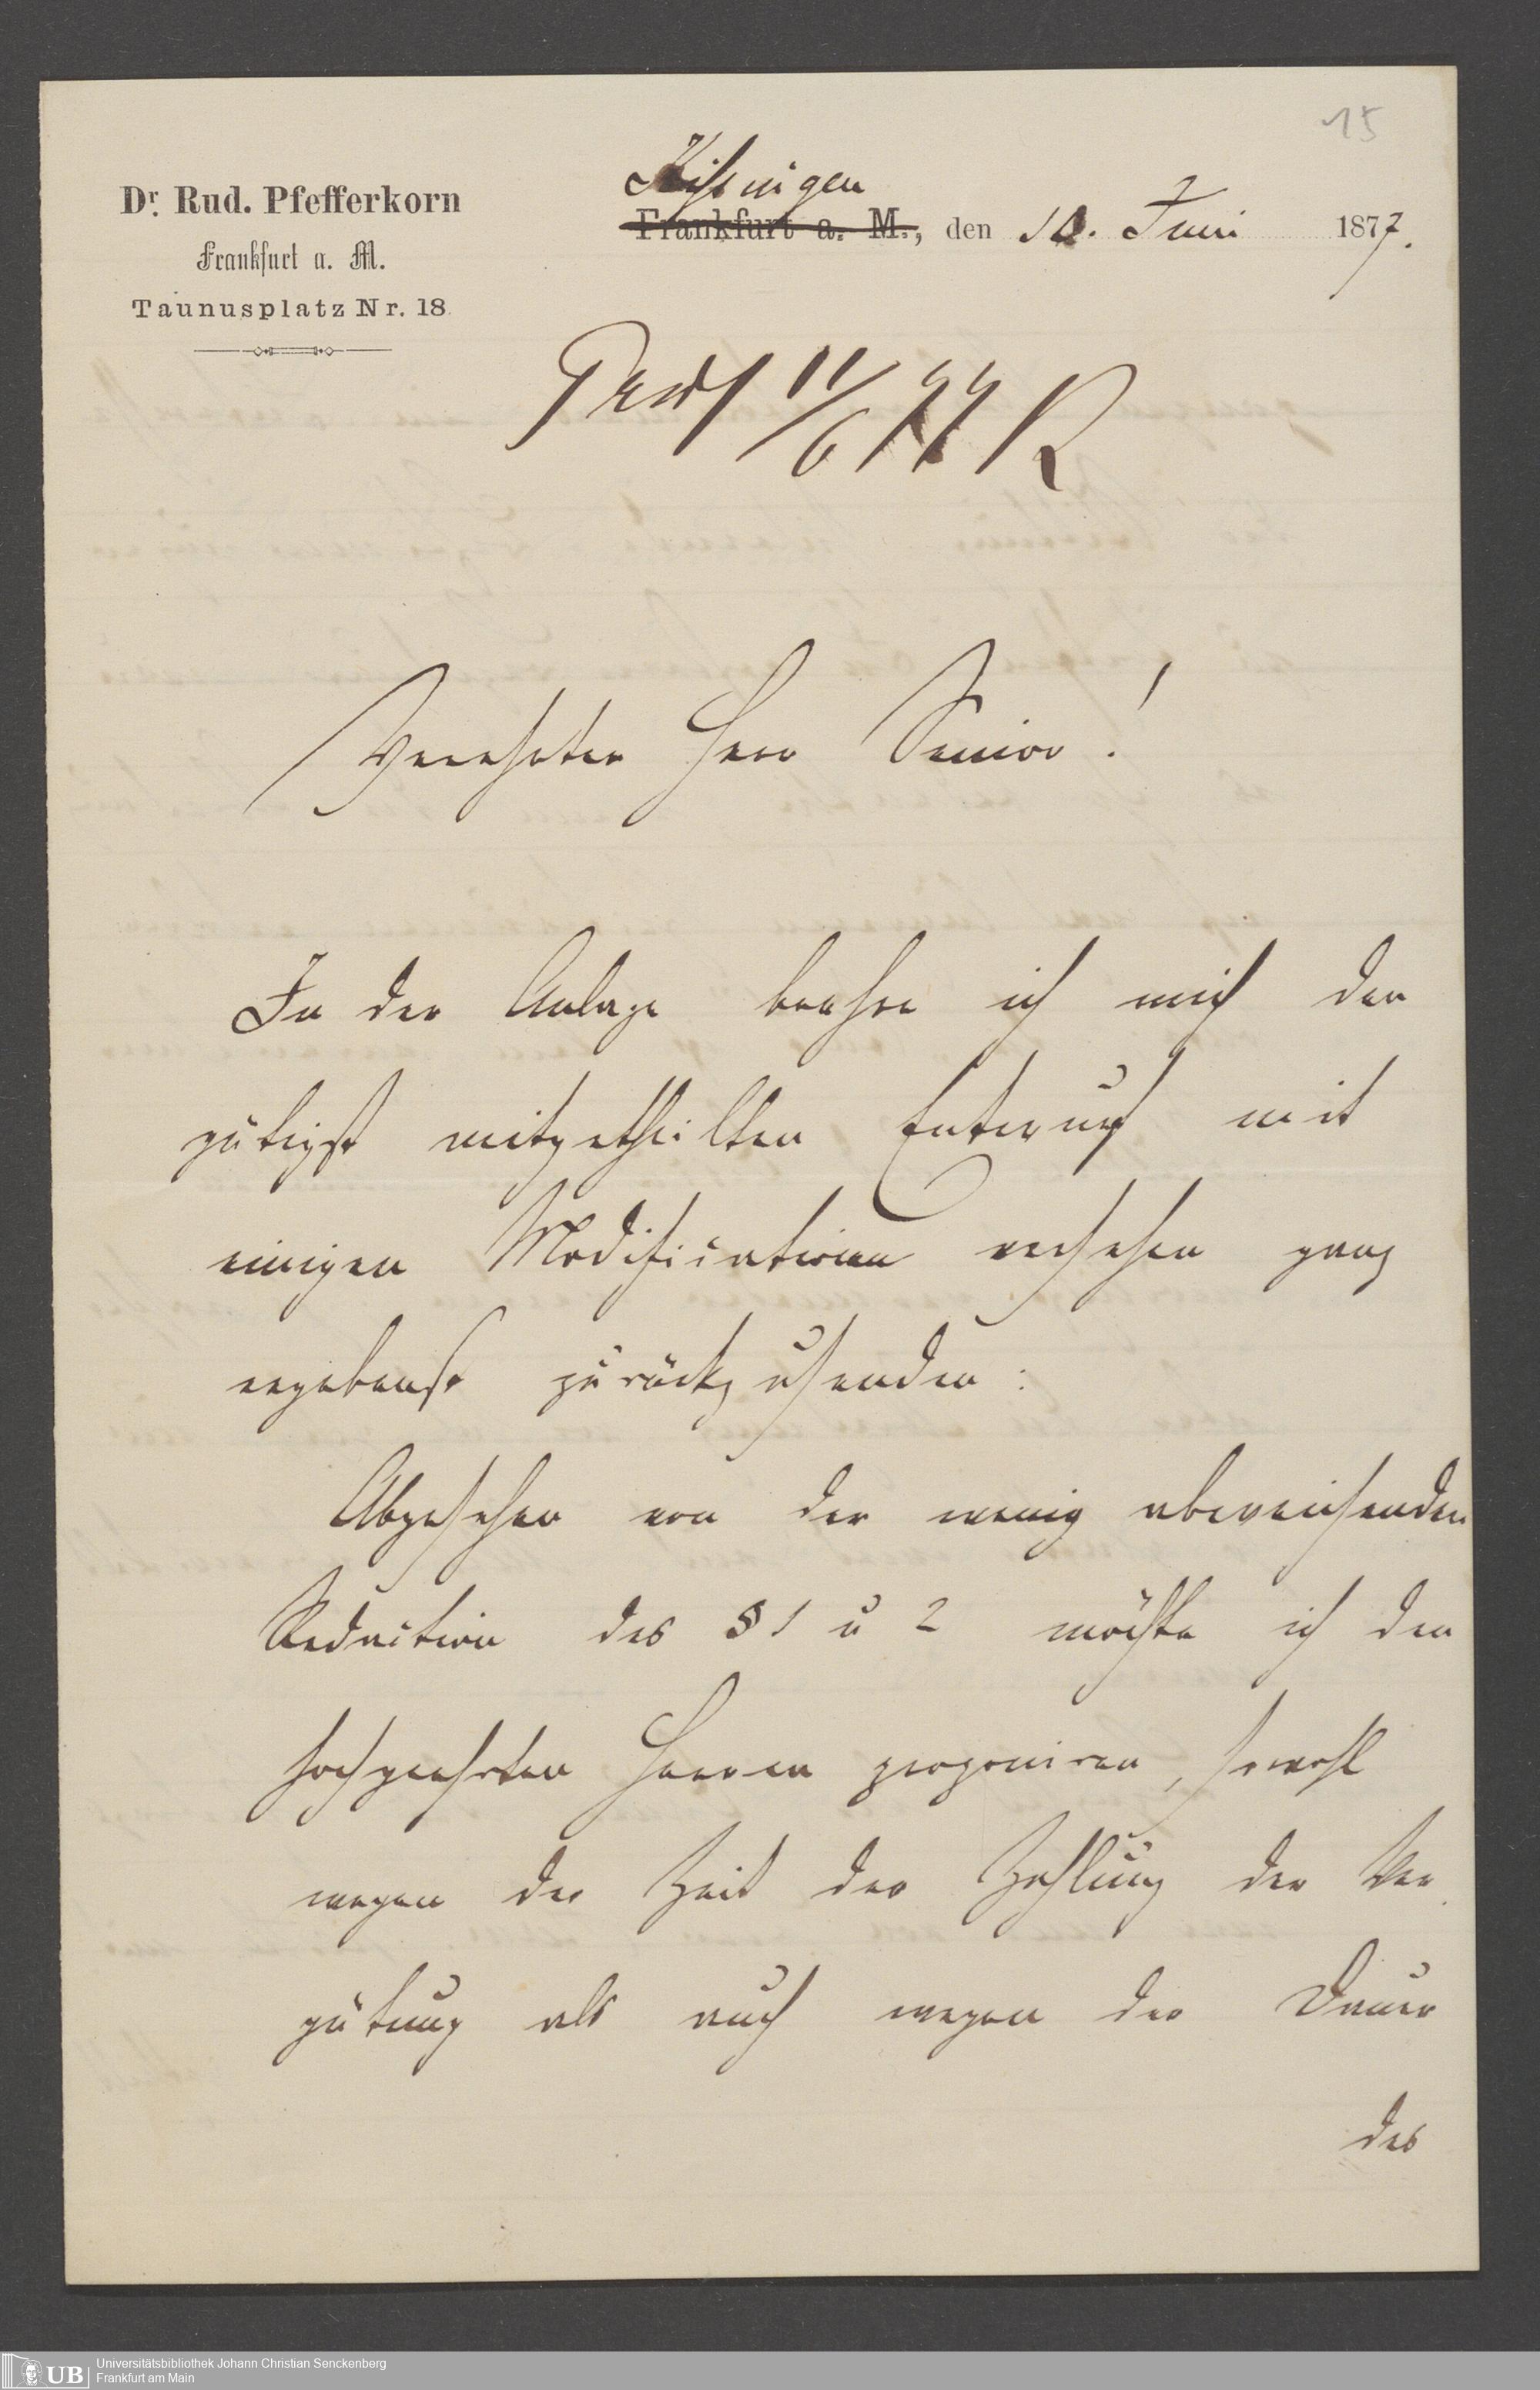 15
Dr. Rud. Pfefferkorn
Frankfurt a. M.
Taunusplatz Nr. 18
Kissingen
Frankfurt a. M., den 10. Juni 1877.
11/6 77 R
Verehrter Herr Senior!
In der Anlage beehre ich mich den
gütigst mitgetheilten Entwurf mit
einigen Modificationen versehen ganz
ergebenst zurückzusenden:
Abgesehen von der wenig abweichenden
Redaction des § 1 u 2 möchte ich den
hochgeehrten Herren proponiren, sowohl
wegen der Zeit der Zahlung der Ver
gütung als auch wegen der Dauer
des
Universitätsbibliothek Johann Christian Senckenberg
Frankfurt am Main
UB